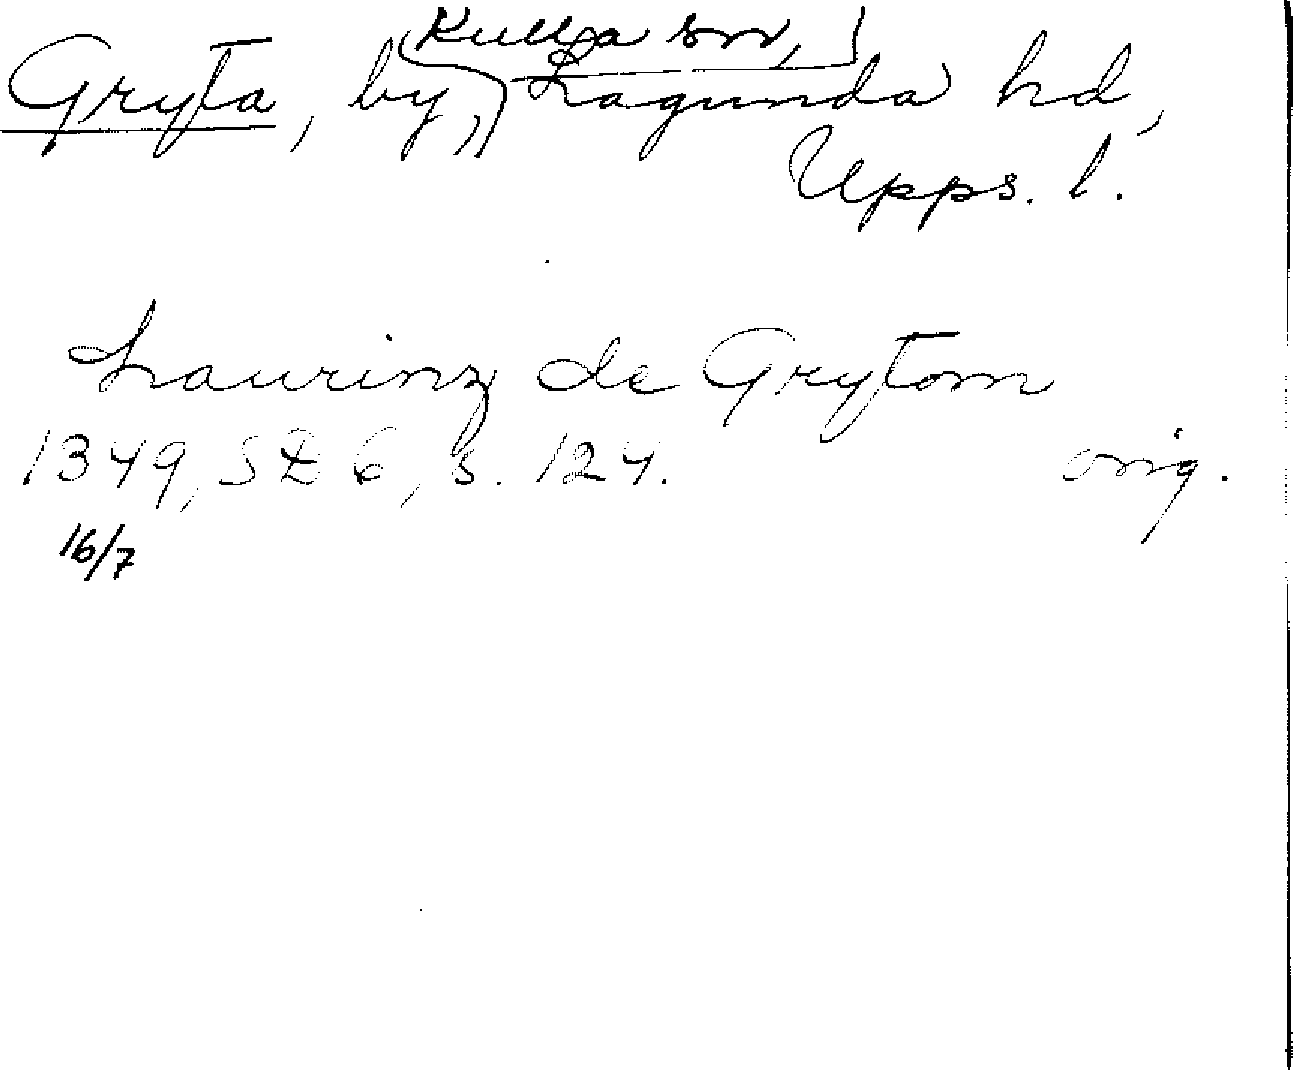 Kulla sn,
Gryta, by, Lagunda hd,
Upps. l.
Laurinz de Grytom
1349, SD 6, s. 124. orig.
16/7